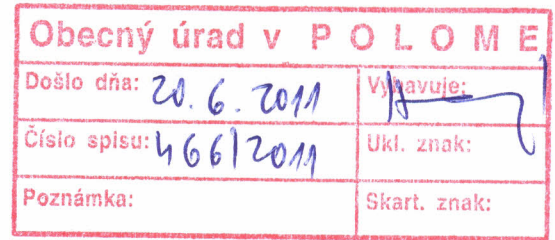 Obecný úrad v POLOME
Došlo dňa: 20. 6. 2011 Vybavuje:
Číslo spisu: 466/2011 Ukl. znak:
Poznámka: Skart. znak: